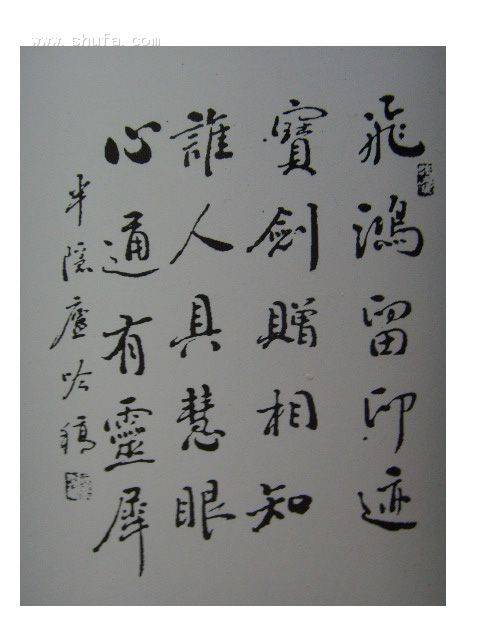 www.shufa.com
飛鴻留印迹
寶劍贈相知
誰人具慧眼
心通有靈犀
半隱廬吟稿